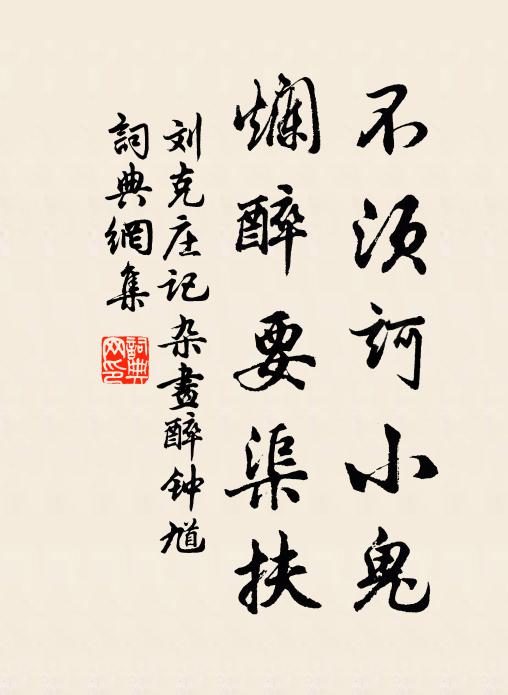 不须訶小鬼
爛醉要渠扶
刘克庄记杂畫醉钟馗
詞典網集
詞典
网印